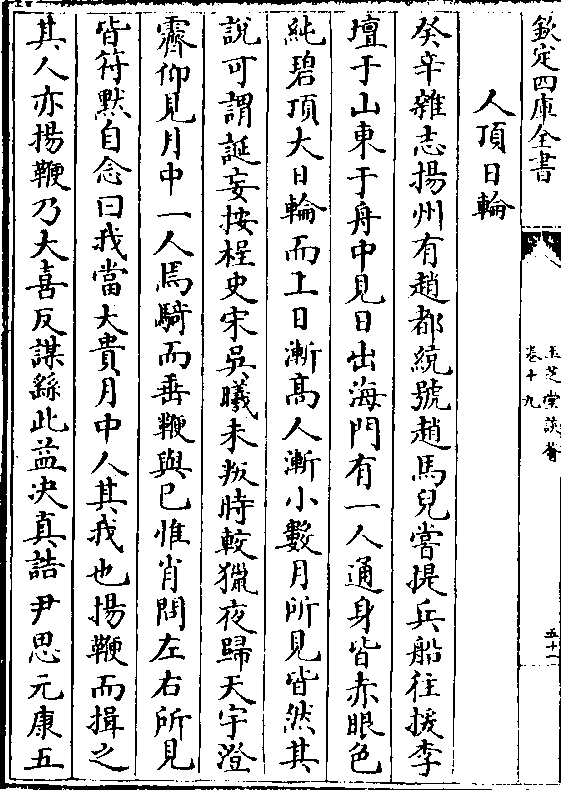 欽定四庫全書
玉芝堂談薈
卷十九
五十一
人頂日輪
癸辛雜志揚州有趙都統號趙馬兒嘗提兵船往援李
壇于山東于舟中見日出海門有一人通身皆赤眼色
純碧頂大日輪而上日漸髙人漸小數月所見皆然其
說可謂誕妄按桯史宋吳曦未叛時較獵夜歸天宇澄
霽仰見月中一人焉騎而垂鞭與已惟肖問左右所見
皆符黙自念曰我當大貴月中人其我也揚鞭而揖之
其人亦揚鞭乃大喜反謀繇此益决真誥尹思元康五